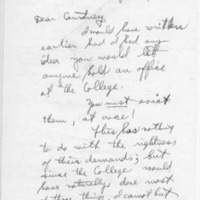 Dear Courtney
I would have written
earlier had I had any
idea you would let
anyone hold an office
at the College.
You must evict
them, at once!
This has nothing
to do with the rightness
of their demands; but
since the College would
have naturally done most
of these things, I cannot but